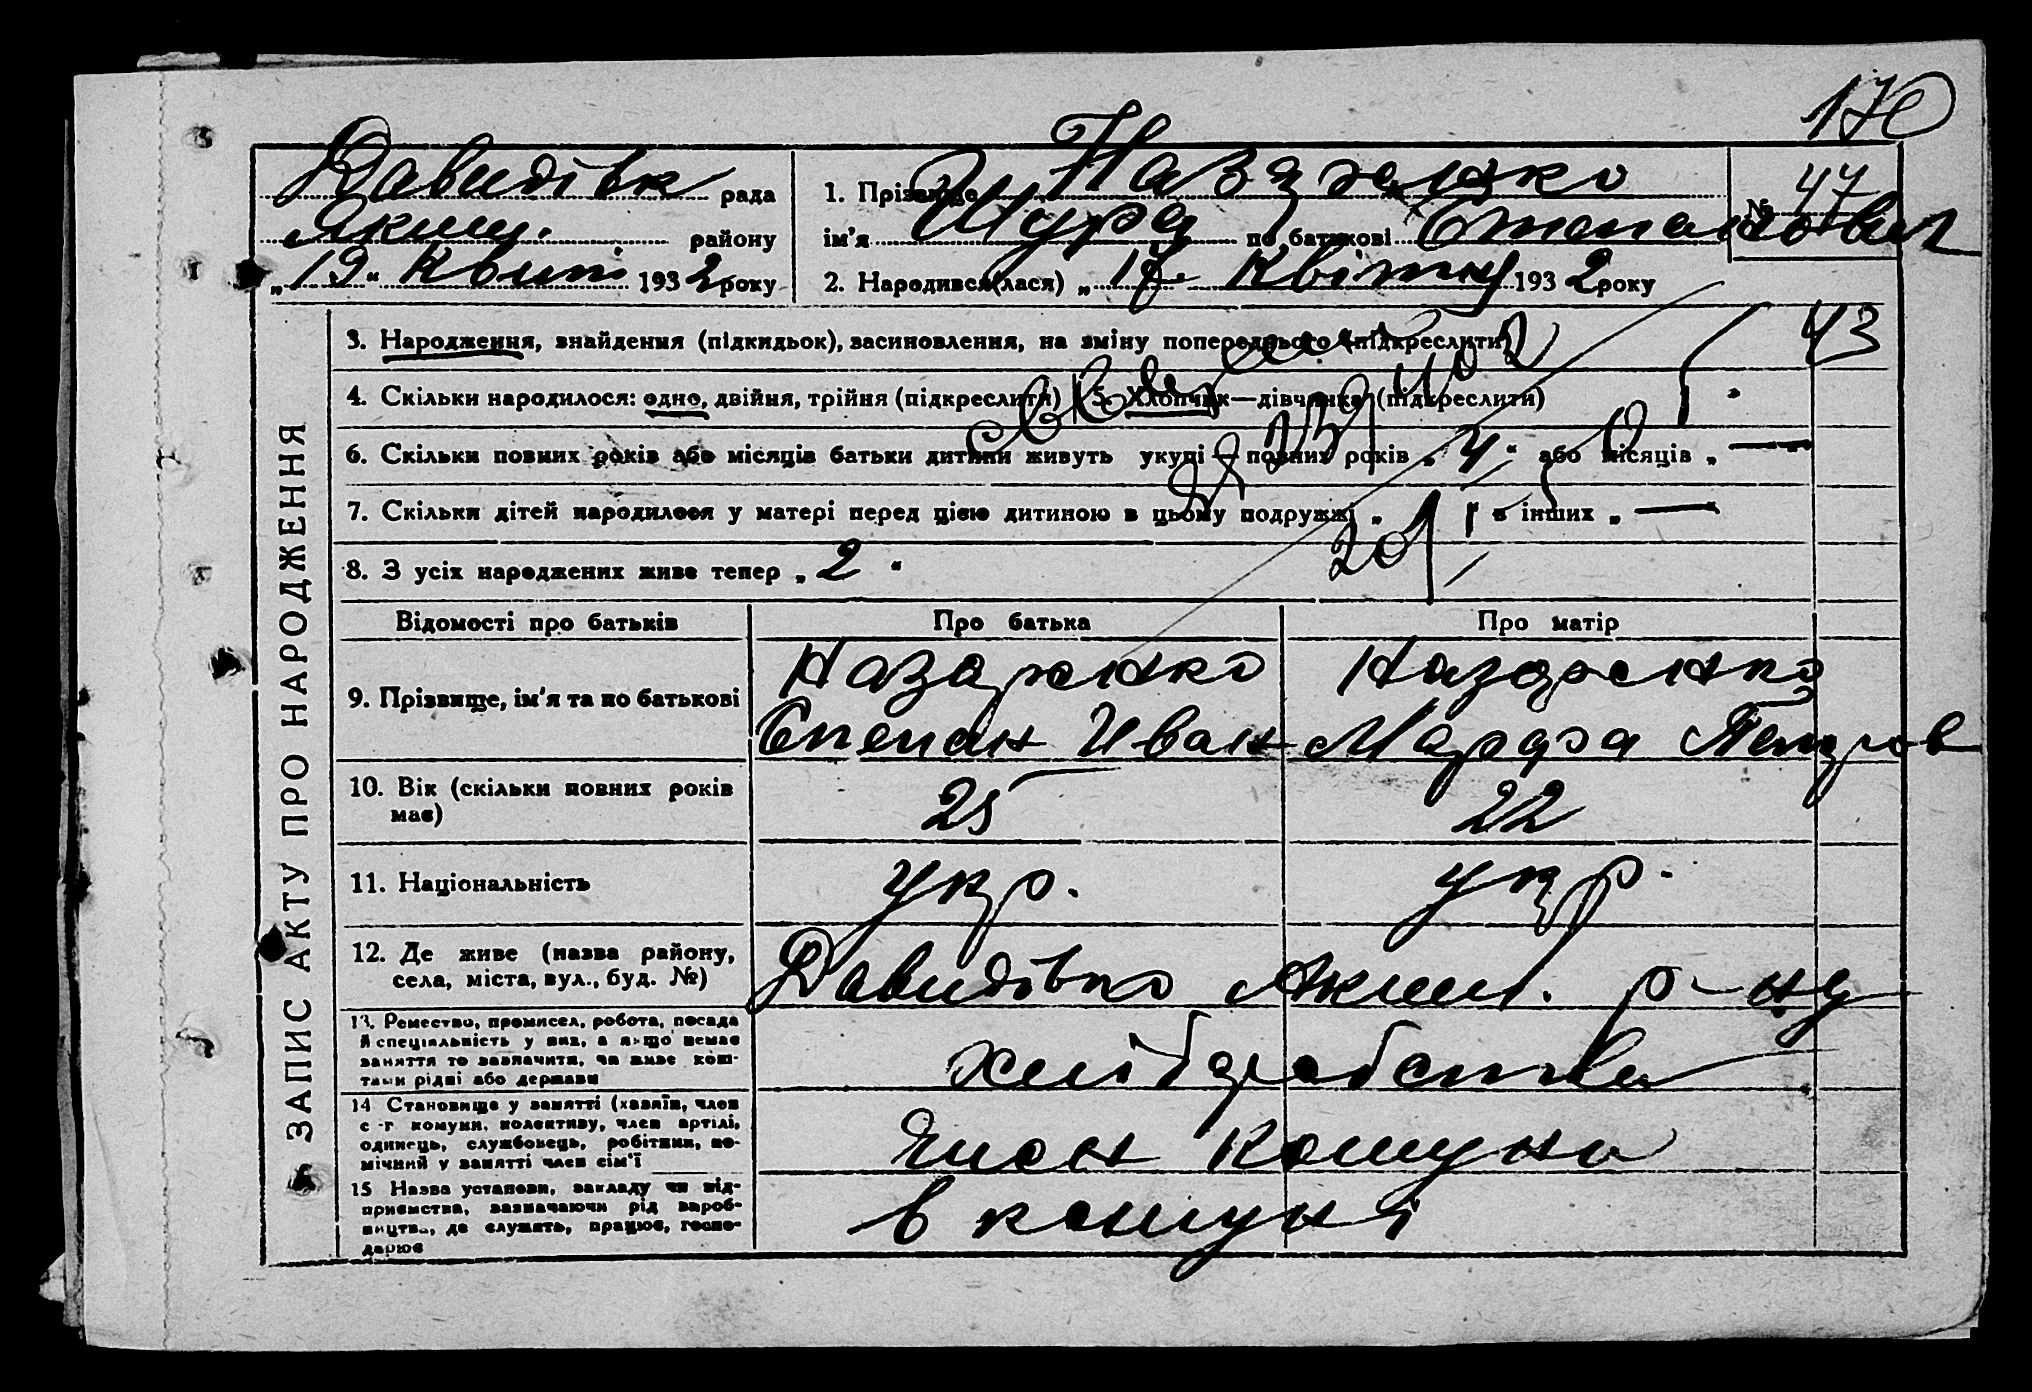 170
Давидівк рада
Яким. району
„19“ Квіт. 1932 року
1. Прізвище Назаренко
ім'я Шура по батькові Степанович
№ 47
2. Народився(лася) „17 Квітня 1932 року
ЗАПИС АКТУ ПРО НАРОДЖЕННЯ
3. Народження, знайдення (підкидьок), засиновлення, на зміну попереднього (підкреслити)
43
4. Скільки народилося: одно, двійня, трійня (підкреслити)
5. Хлопчик—дівчинка (підкреслити)
6. Скільки повних років або місяців батьки дитини живуть укупі — повних років „4“ або місяців „—“
7. Скільки дітей народилося у матері перед цією дитиною в цьому подружжі „1“ в інших „—“
8. З усіх народжених живе тепер „2“
201
Відомості про батьків
Про батька
Про матір
9. Прізвище, ім'я та по батькові
Назаренко
Степан Иван
Назаренко
Петров
10. Вік (скільки повних років має)
25
22
11. Національність
укр.
укр.
12. Де живе (назва району, села, міста, вул., буд. №)
Давидівка Яким. р-ну
13. Ремество, промисел, робота, посада
й спеціяльність у них, а якщо немає
заняття то зазначити, чи живе кош-
тами рідні або держави
хліборобства
14 Становище у занятті (хазяїн, член
с-г комуни, колективу, член артілі,
одинець, службовець, робітник, по-
мічний у занятті член сім'ї
член комуни
15 Назва установи, закладу чи під-
приємства, зазначаючи рід вироб-
ництва, де служить, працює, госпо-
дарює
в комуні